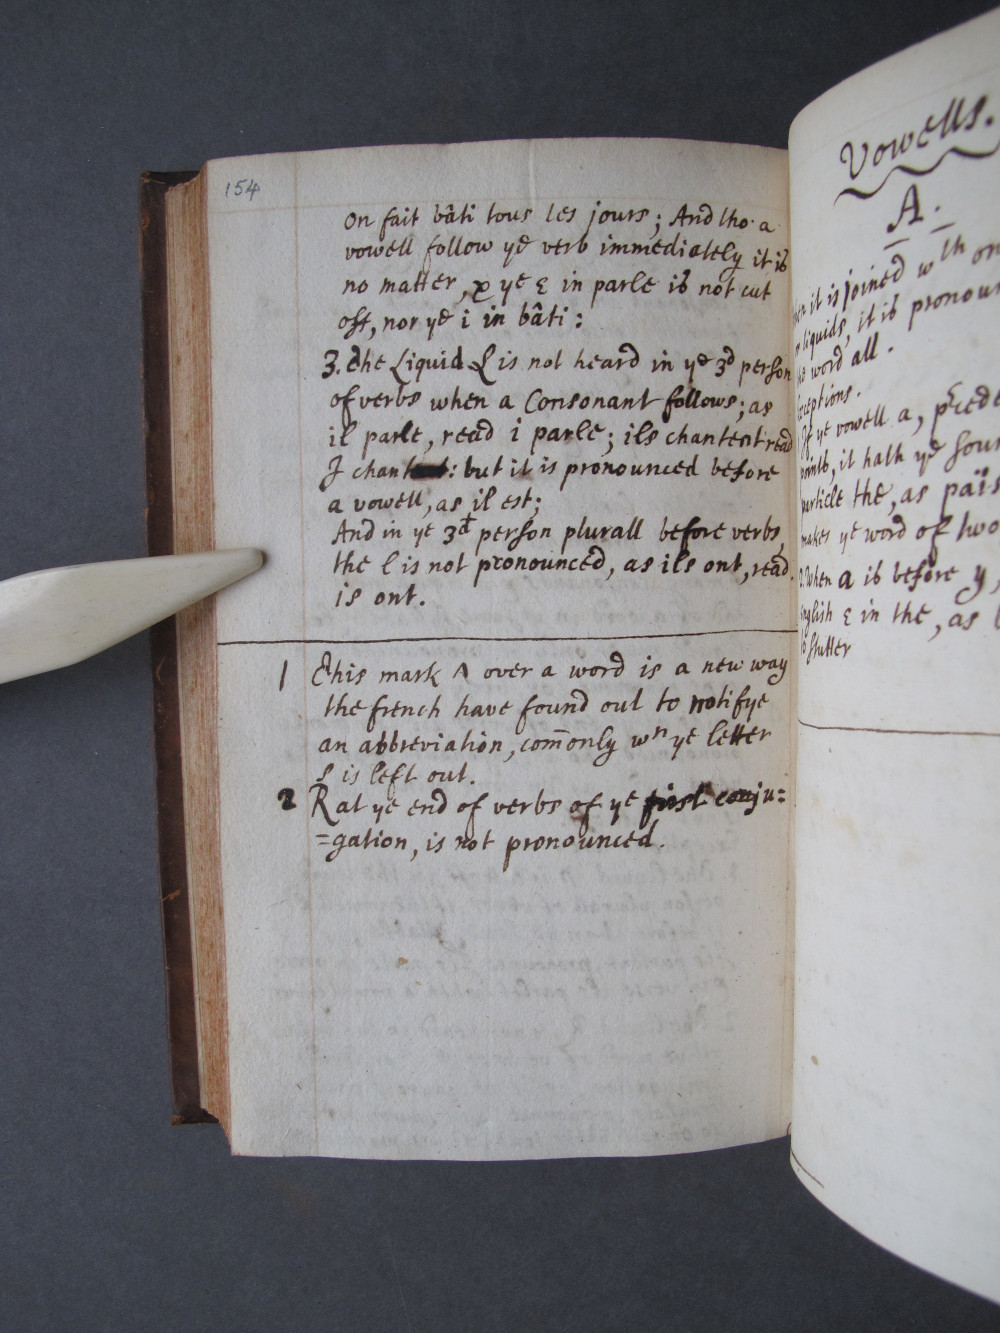 154
on fait bâti tous les jours; And tho. a
vowell follow yᵉ verb immediately it is
no matter, ye ε in parle is not cut
off, nor yᵉ i in bâti:
3. The Liquid L is not heard in yᵉ 3ᵈ person
of verbs when a Consonant follows; as
il parle, read i parle; ils chantent read
I chant : but it is pronounced before
a vowell, as il est;
And in ye 3ᵈ person plurall before verbs,
the l is not pronounced, as ils ont, read
is ont.
1 This mark ʌ over a word is a new way
the french have found out to notifye
an abbreviation, com̄only wⁿ ye letter
s is left out.
2 R at ye end of verbs of yᵉ first conju=
=gation, is not pronounced.
Vowells.
A.
it is joined wᵗʰ on
liquids, it is pronoun
word all.
If ye vowell a, preced
it hath yᵉ soun
particle the, as païs
makes ye word of two
2. When a is before y,
English ε in the, as
stutter